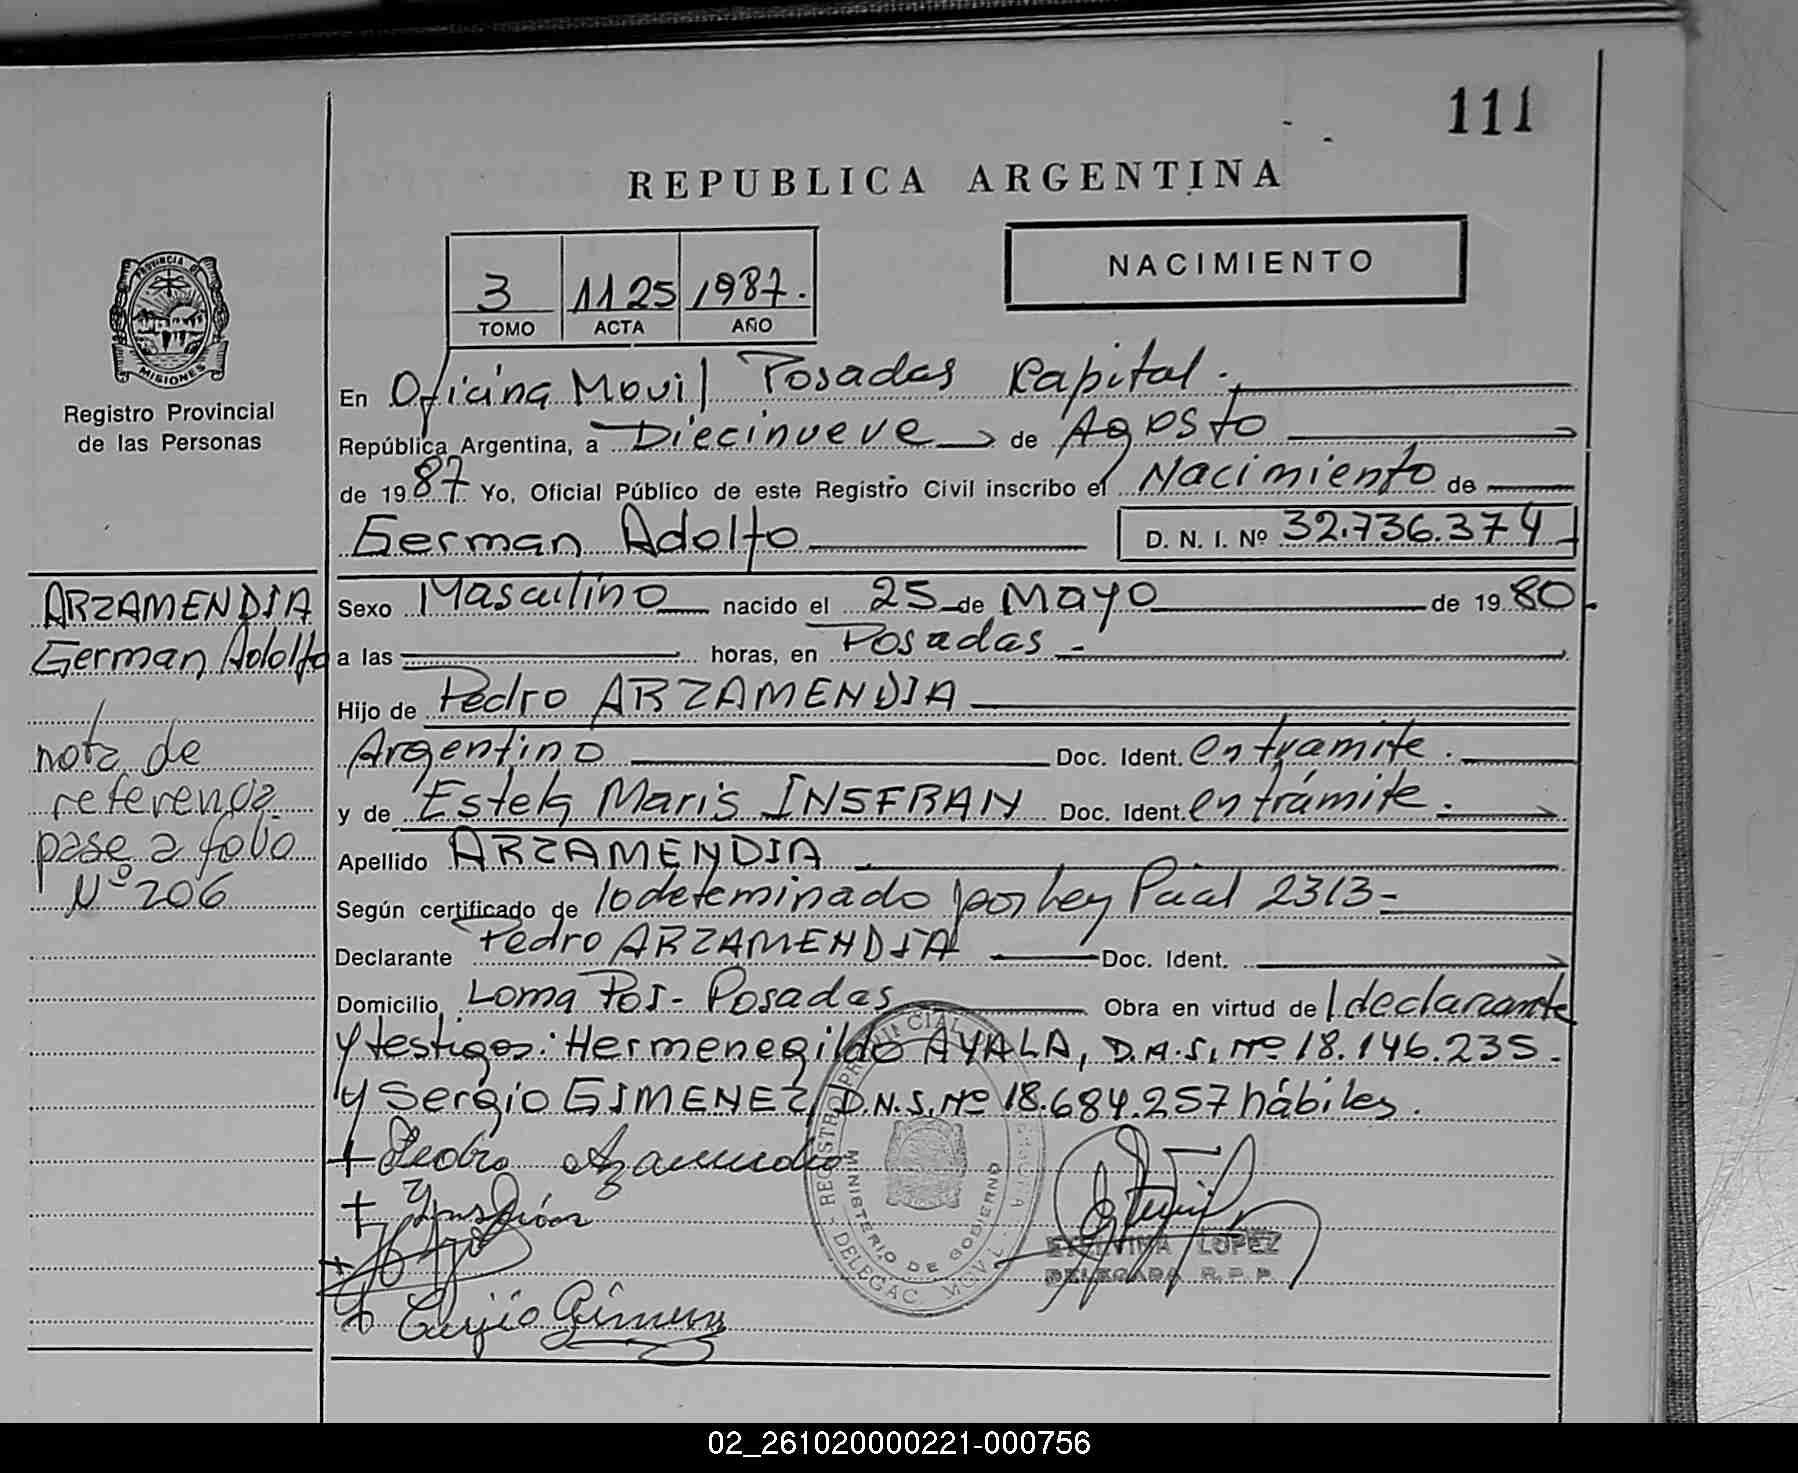 111
REPUBLICA ARGENTINA
3 1125 1987.
TOMO ACTA AÑO
NACIMIENTO
PROVINCIA DE
MISIONES
Registro Provincial
de las Personas
En Oficina Movil Posadas Kapital.
República Argentina, a Diecinueve de Agosto
de 1987 Yo, Oficial Público de este Registro Civil inscribo el Nacimiento de
German Adolfo D. N. I. Nº 32.736.374
ARZAMENDIA
German Adolfo
nota de
referencia
pase a folio
Nº 206
Sexo Masculino nacido el 25 de Mayo de 1980.
a las horas, en Posadas -
Hijo de Pedro ARZAMENDIA
Argentino Doc. Ident. en tramite.
y de Estela Maris INSFRAN Doc. Ident. en trámite.
Apellido ARZAMENDIA
Según certificado de lo determinado por Ley Pcial 2313-
Declarante Pedro ARZAMENDIA Doc. Ident.
Domicilio Loma Poi - Posadas Obra en virtud de l declarante
y testigos: Hermenegildo AYALA, D.N.I. Nº 18.146.235.
y Sergio GIMENEZ, D.N.I. Nº 18.684.257 hábiles.
Pedro
Sergio Gimenez
REGISTRO PROVINCIAL
MINISTERIO DE GOBIERNO
DELEGAC. MOVIL
LOPEZ
DELEGADA R.P.P.
02_261020000221-000756